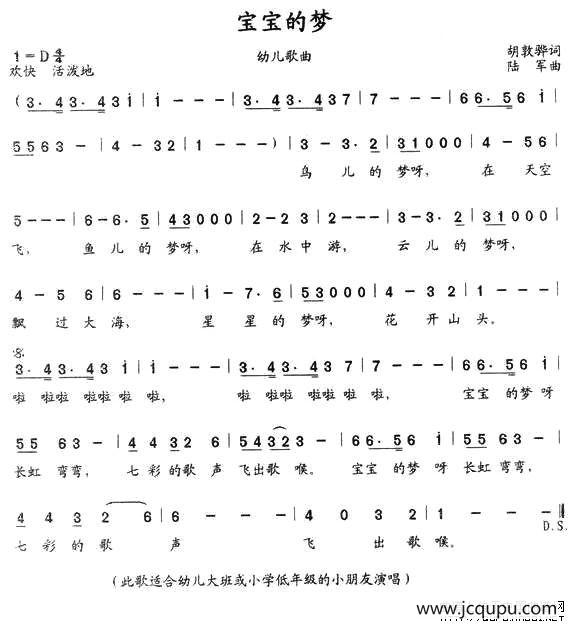 宝宝的梦
1=D 4/4
幼儿歌曲
胡敦骅词
欢快 活泼地
陆 军曲
(3· 4 3· 4 3 1̇ | 1̇ - - - | 3· 4 3· 4 3 7 | 7 - - - | 6 6· 5 6 1̇
5 5 6 3 - | 4 - 3 2 | 1 - - - ) | 3 - 3· 2 | 3 1 0 0 0 | 4 - 5 6
鸟 儿的 梦呀, 在 天空
5 - - - | 6 - 6· 5 | 4 3 0 0 0 | 2 - 2 3 | 2 - - - | 3 - 3· 2 | 3 1 0 0 0
飞, 鱼儿的 梦呀, 在水中 游, 云儿的 梦呀,
4 - 5 6 | 6 - - - | 1̇ - 7· 6 | 5 3 0 0 0 | 4 - 3 2 | 1 - - -
飘 过大 海, 星 星的 梦呀, 花 开山 头。
3· 4 3· 4 3 1̇ | 1̇ - - - | 3· 4 3· 4 3 7 | 7 - - - | 6 6· 5 6 1̇
啦 啦啦 啦啦啦 啦, 啦 啦啦 啦啦啦 啦, 宝宝 的梦 呀
5 5 6 3 - | 4 4 3 2 6 | 5 4 3 2 3 - | 6 6· 5 6 1̇ | 5 5 6 3 -
长虹 弯弯, 七 彩的歌 声 飞出歌 喉。 宝宝 的梦 呀 长虹 弯弯,
4 4 3 2 6 | 6 - - - | 4 0 3 2 | 1 - - - ‖
D.S.
七 彩的 歌 声 飞 出 歌 喉。
(此歌适合幼儿大班或小学低年级的小朋友演唱)
www.jcqupu.com